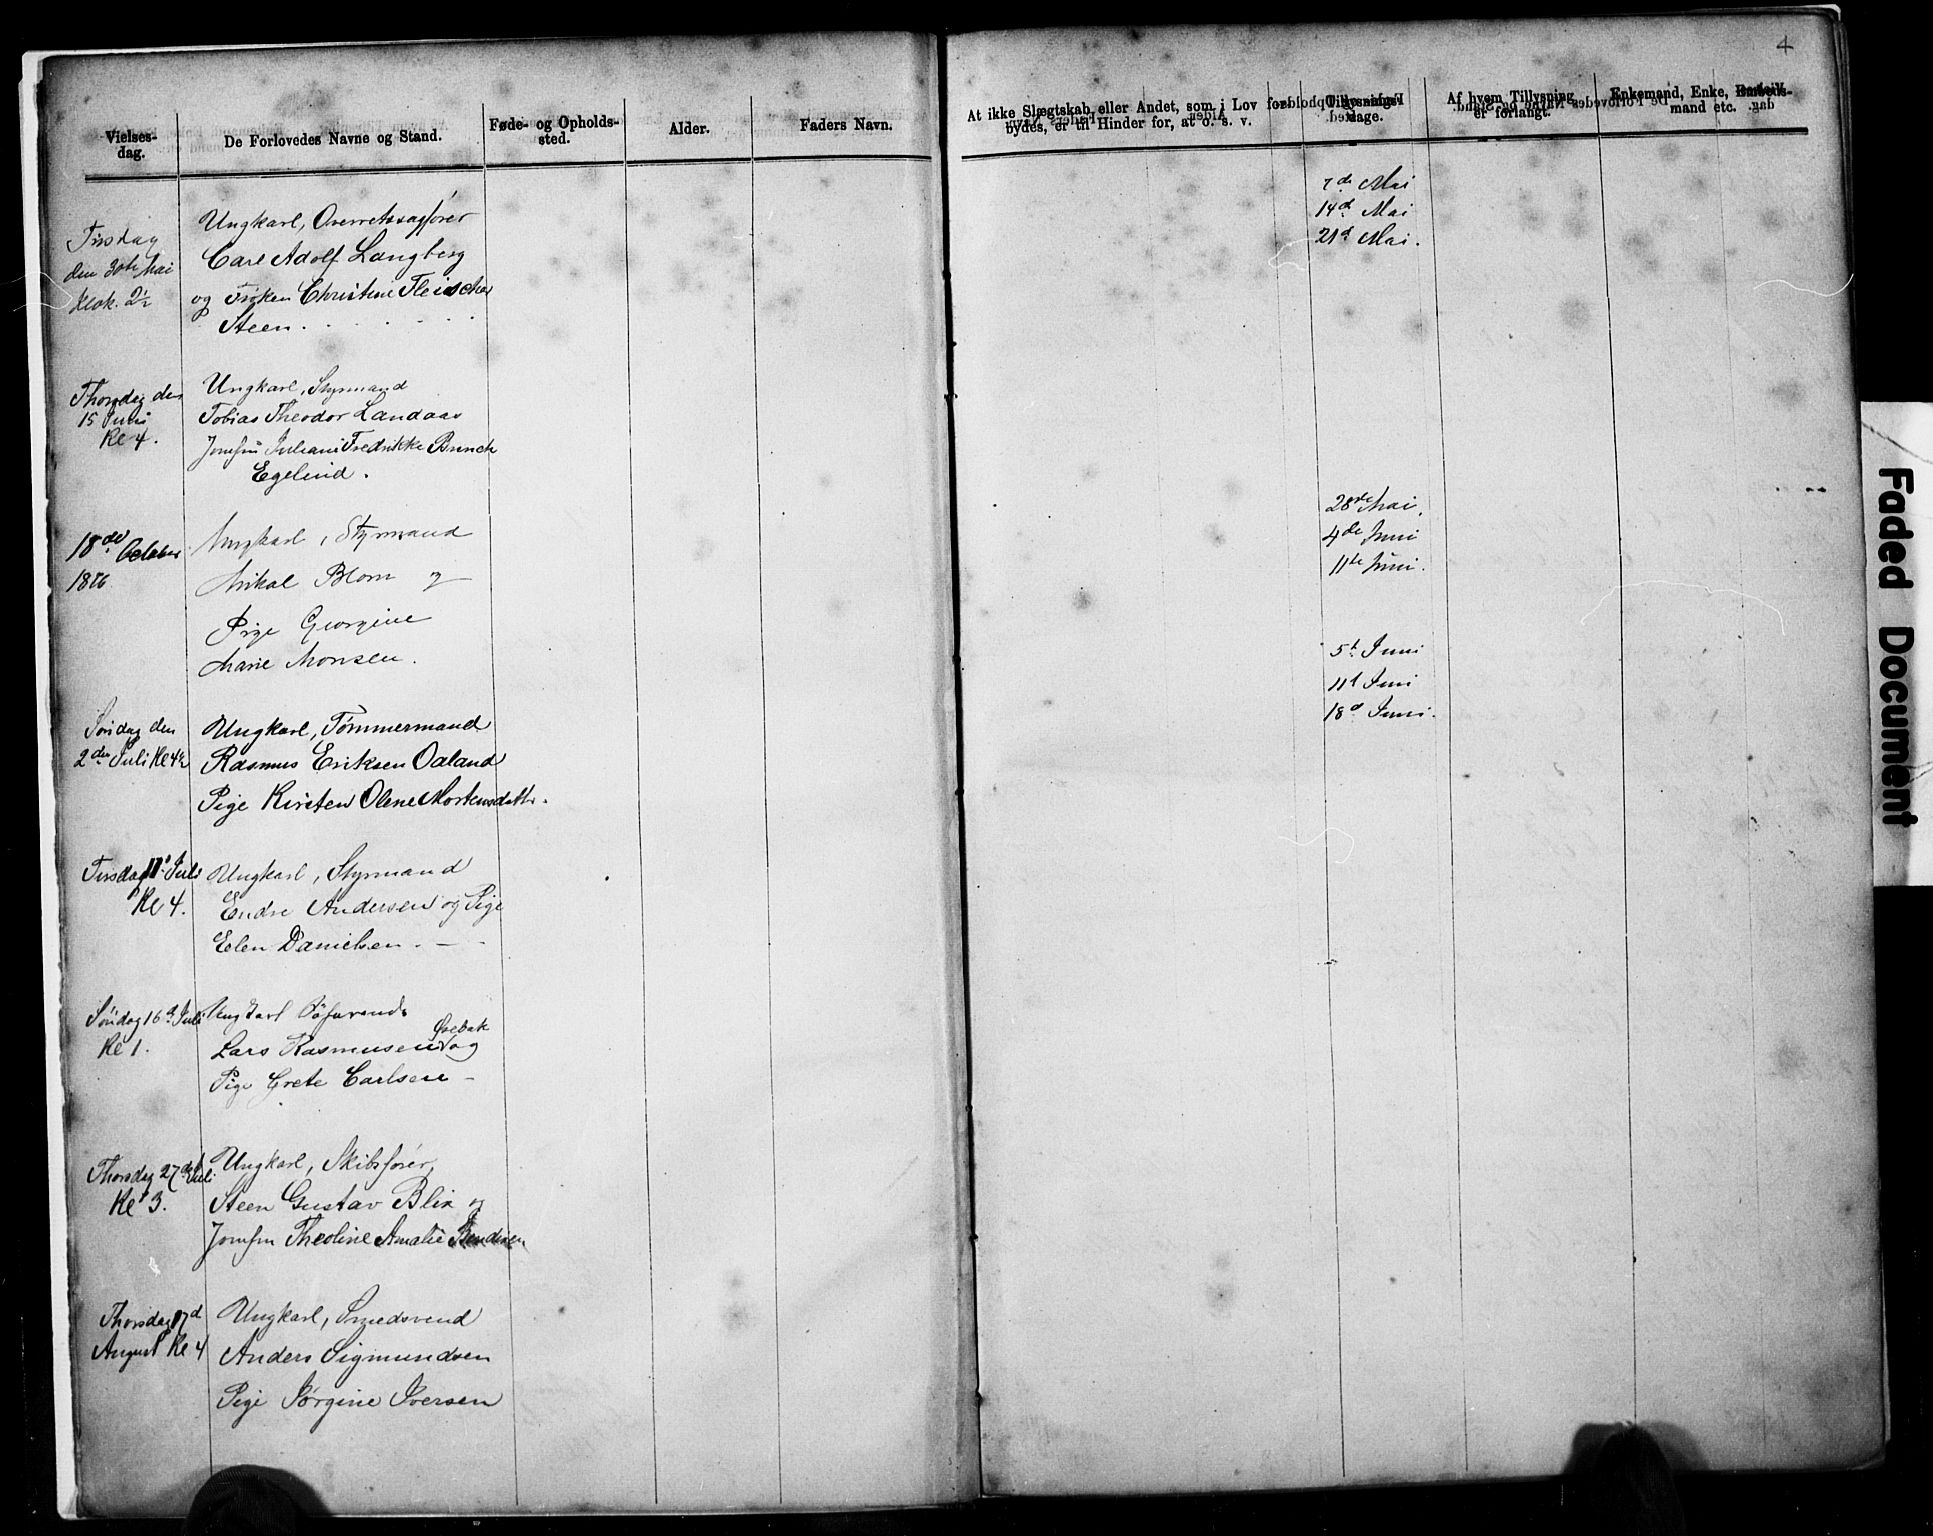 4
Vielses-
dag.
De Forlovedes Navne og Stand.
Føde- og Opholds-
sted.
Alder.
Faders Navn.
At ikke Slægtskab eller Andet, som i Lov for-
bydes, er til Hinder for, at o. s. v.
Tillysnings-
dage.
Af hvem Tillysning
er forlangt.
Enkemand, Enke, Enke-
mand etc.
7de Mai
14d Mai
21d Mai.
Tirsdag
den 30te Mai
Klok. 2½
Ungkarl, Overretssagfører
Carl Adolf Langberg
og Frøken Christine Fleischer
Steen.
Thorsdag den
15 Juni
Kl 4.
Ungkarl, Styrmand
Tobias Theodor Landaas
Jomfru Juliane Fredrikke Bunch
Egelund.
28de Mai.
4de Juni
11te Juni.
18de October
1876
Ungkarl, Styrmand
Mikal Blom og
Pige Georgine
Marie Monsen.
5t Juni
11t Juni
18d Juni.
Søndag den
2den Juli Kl 4½
Ungkarl, Tømmermand
Rasmus Eriksen Oaland
Pige Kirsten Olene Mortensdattr.
Tirsdag 11t Juli
Kl 4.
Ungkarl, Styrmand
Endre Andersen og Pige
Elen Danielsen. —
Søndag 16d Juli
Kl 1.
Ungkarl Søfarende
Qvebak
Lars Rasmusen og
Pige Grete Carlsen —
Thorsdag 27de Juli
Kl 3.
Ungkarl, Skibsfører,
Steen Gustav Blix og
Jomfru Theoline Amalie
Thorsdag 17d
August Kl 4
Ungkarl, Smedsvend
Anders Sigmundsen
Pige Jørgine Iversen
Faded Document